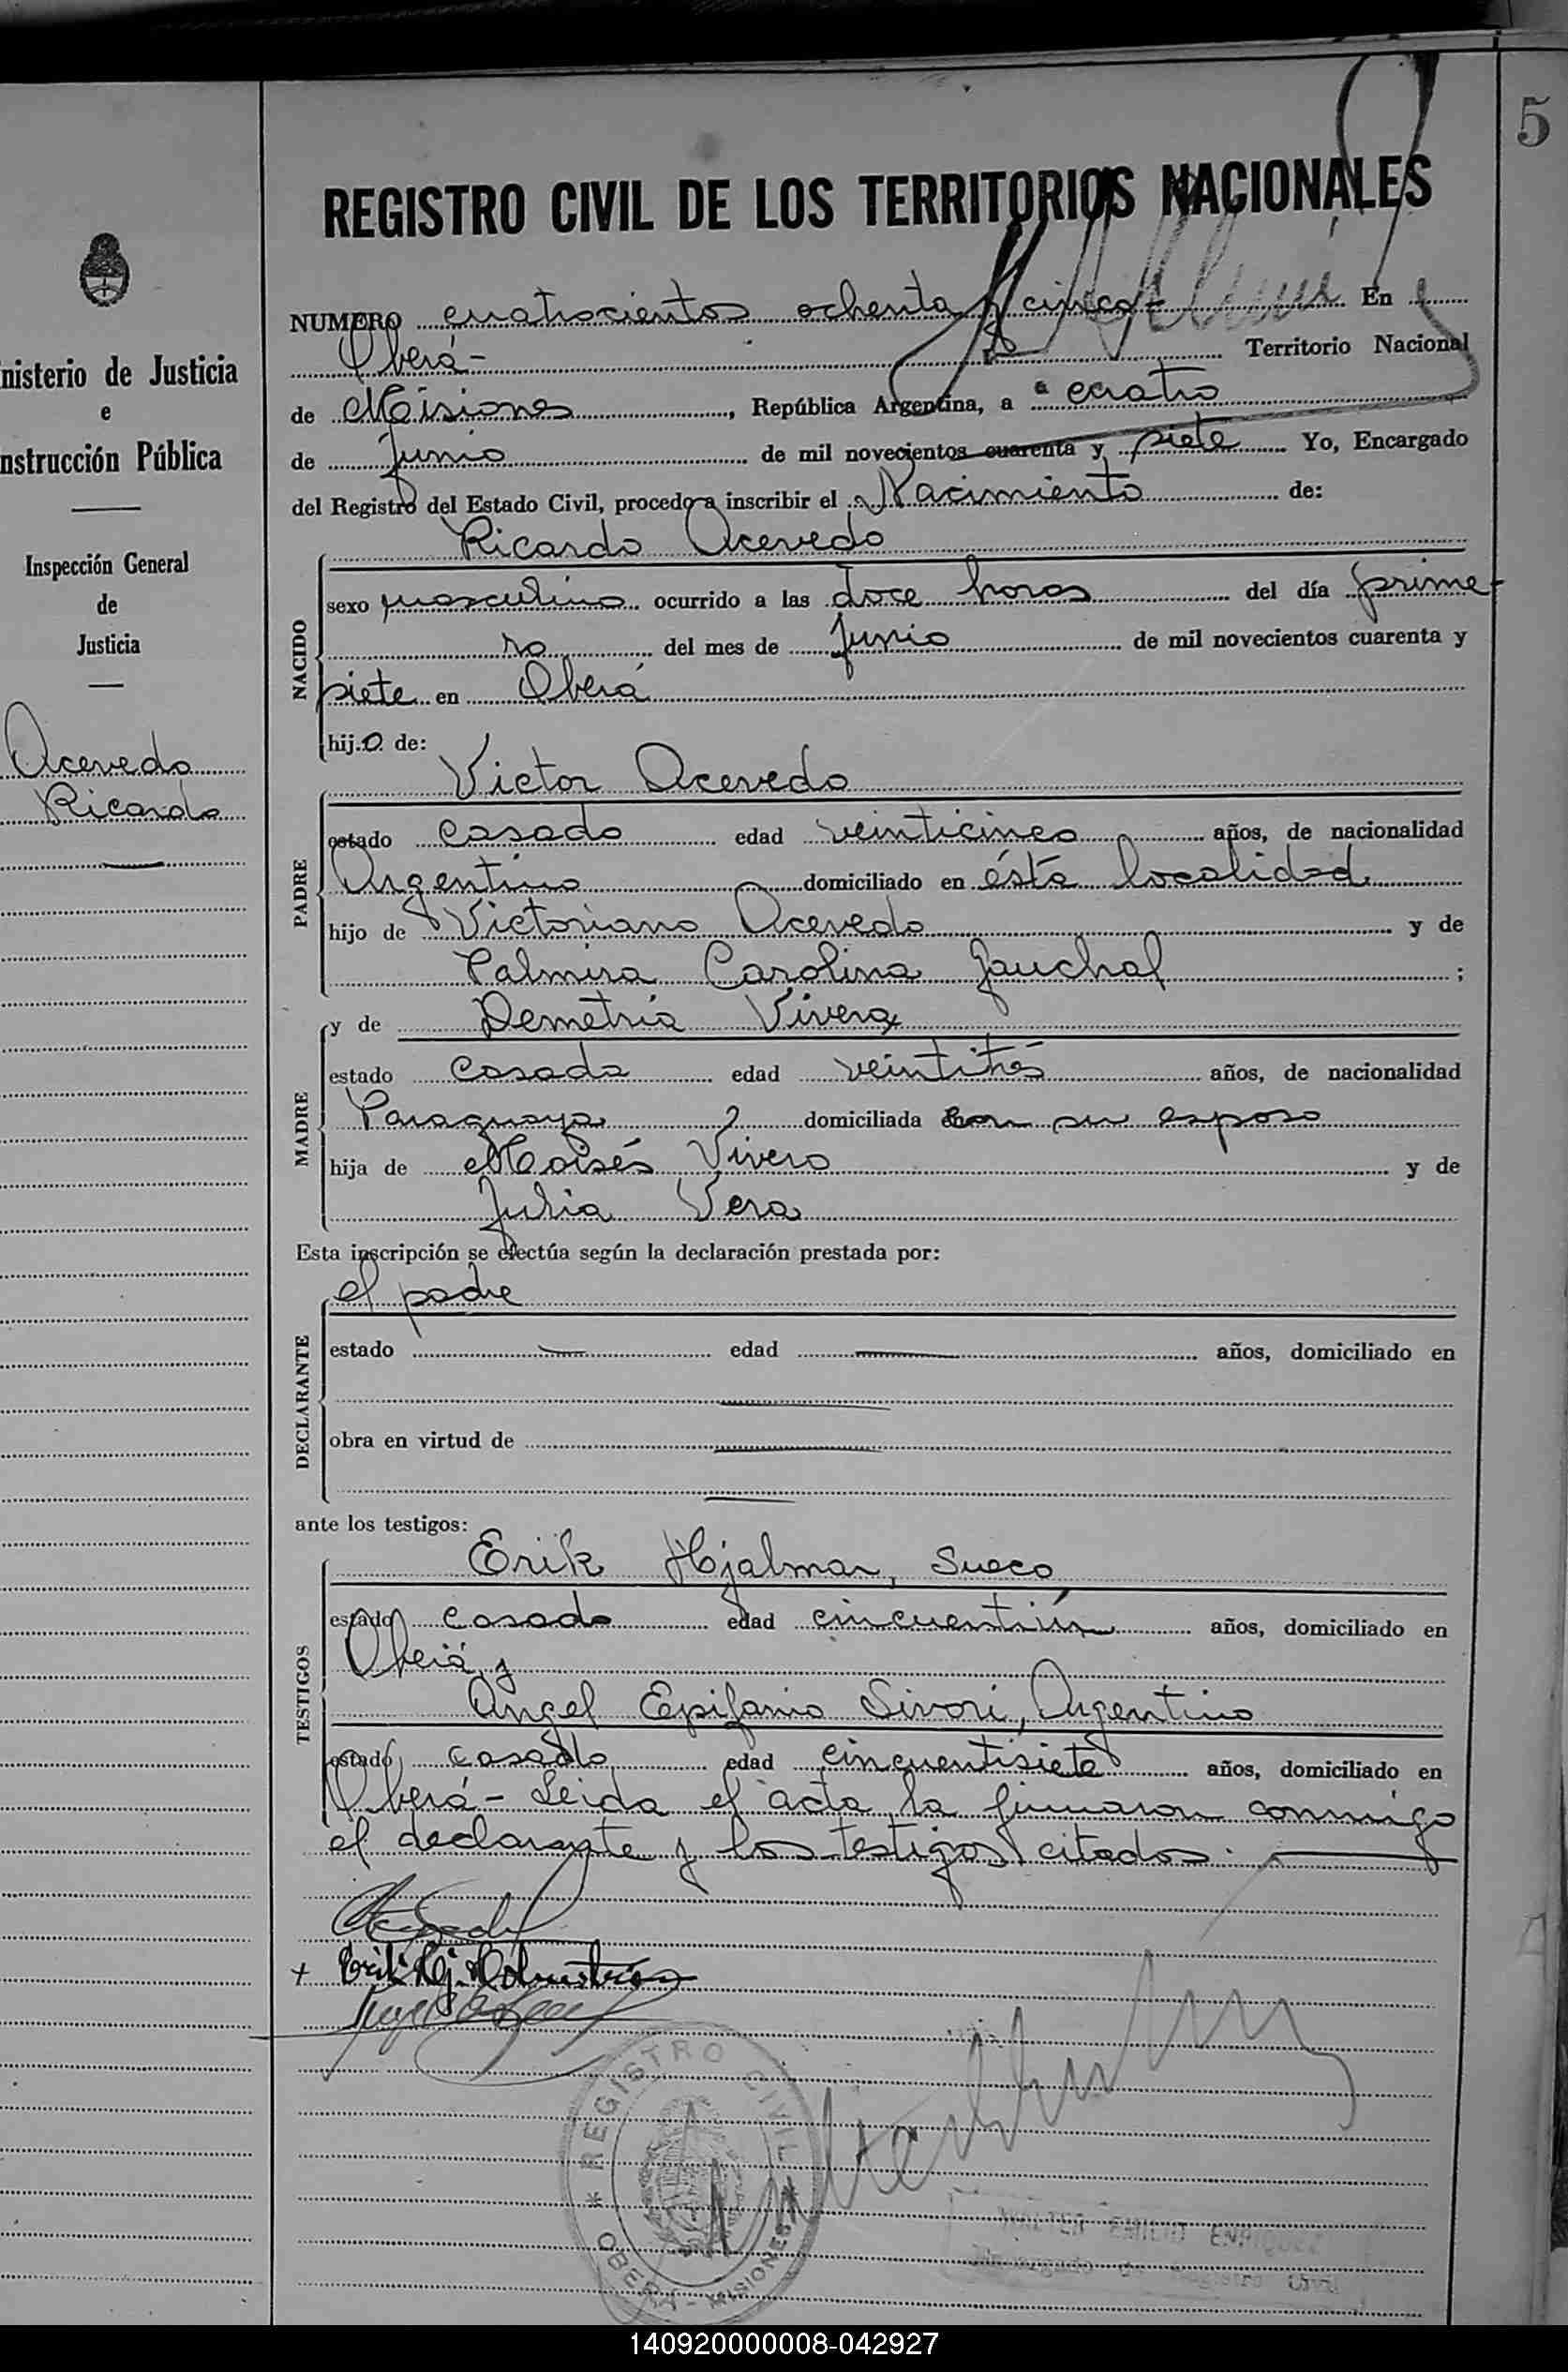 5
REGISTRO CIVIL DE LOS TERRITORIOS NACIONALES
nisterio de Justicia
e
nstrucción Pública
Inspección General
de
Justicia
Acevedo
Ricardo
NUMERO cuatrocientos ochenta y cinco- En
Oberá- Territorio Nacional
de Misiones, República Argentina, a cuatro
de junio de mil novecientos cuarenta y siete Yo, Encargado
del Registro del Estado Civil, procedo a inscribir el Nacimiento de:
NACIDO
Ricardo Acevedo
sexo masculino ocurrido a las doce horas del día prime-
ro del mes de junio de mil novecientos cuarenta y
siete en Oberá
hijo de:
PADRE
Victor Acevedo
estado casado edad veinticinco años, de nacionalidad
Argentino domiciliado en ésta localidad
hijo de Victoriano Acevedo y de
Palmira Carolina ;
MADRE
y de Demetria Vivero
estado casada edad veintitrés años, de nacionalidad
Paraguaya domiciliada con su esposo
hija de Moisés Vivero y de
Julia Vera
Esta inscripción se efectúa según la declaración prestada por:
DECLARANTE
el padre
estado — edad — años, domiciliado en
obra en virtud de
ante los testigos:
TESTIGOS
Erik Hjalmar, Sueco
estado casado edad cincuentiún años, domiciliado en
Oberá y
Angel Epifanio Sivori, Argentino
estado casado edad cincuentisiete años, domiciliado en
Oberá- Leida el acta la firmaron conmigo
el declarante y los testigos citados.
REGISTRO CIVIL
OBERÁ - MISIONES
WALTER EMILIO ENRIQUEZ
Encargado de Registro Civil
140920000008-042927